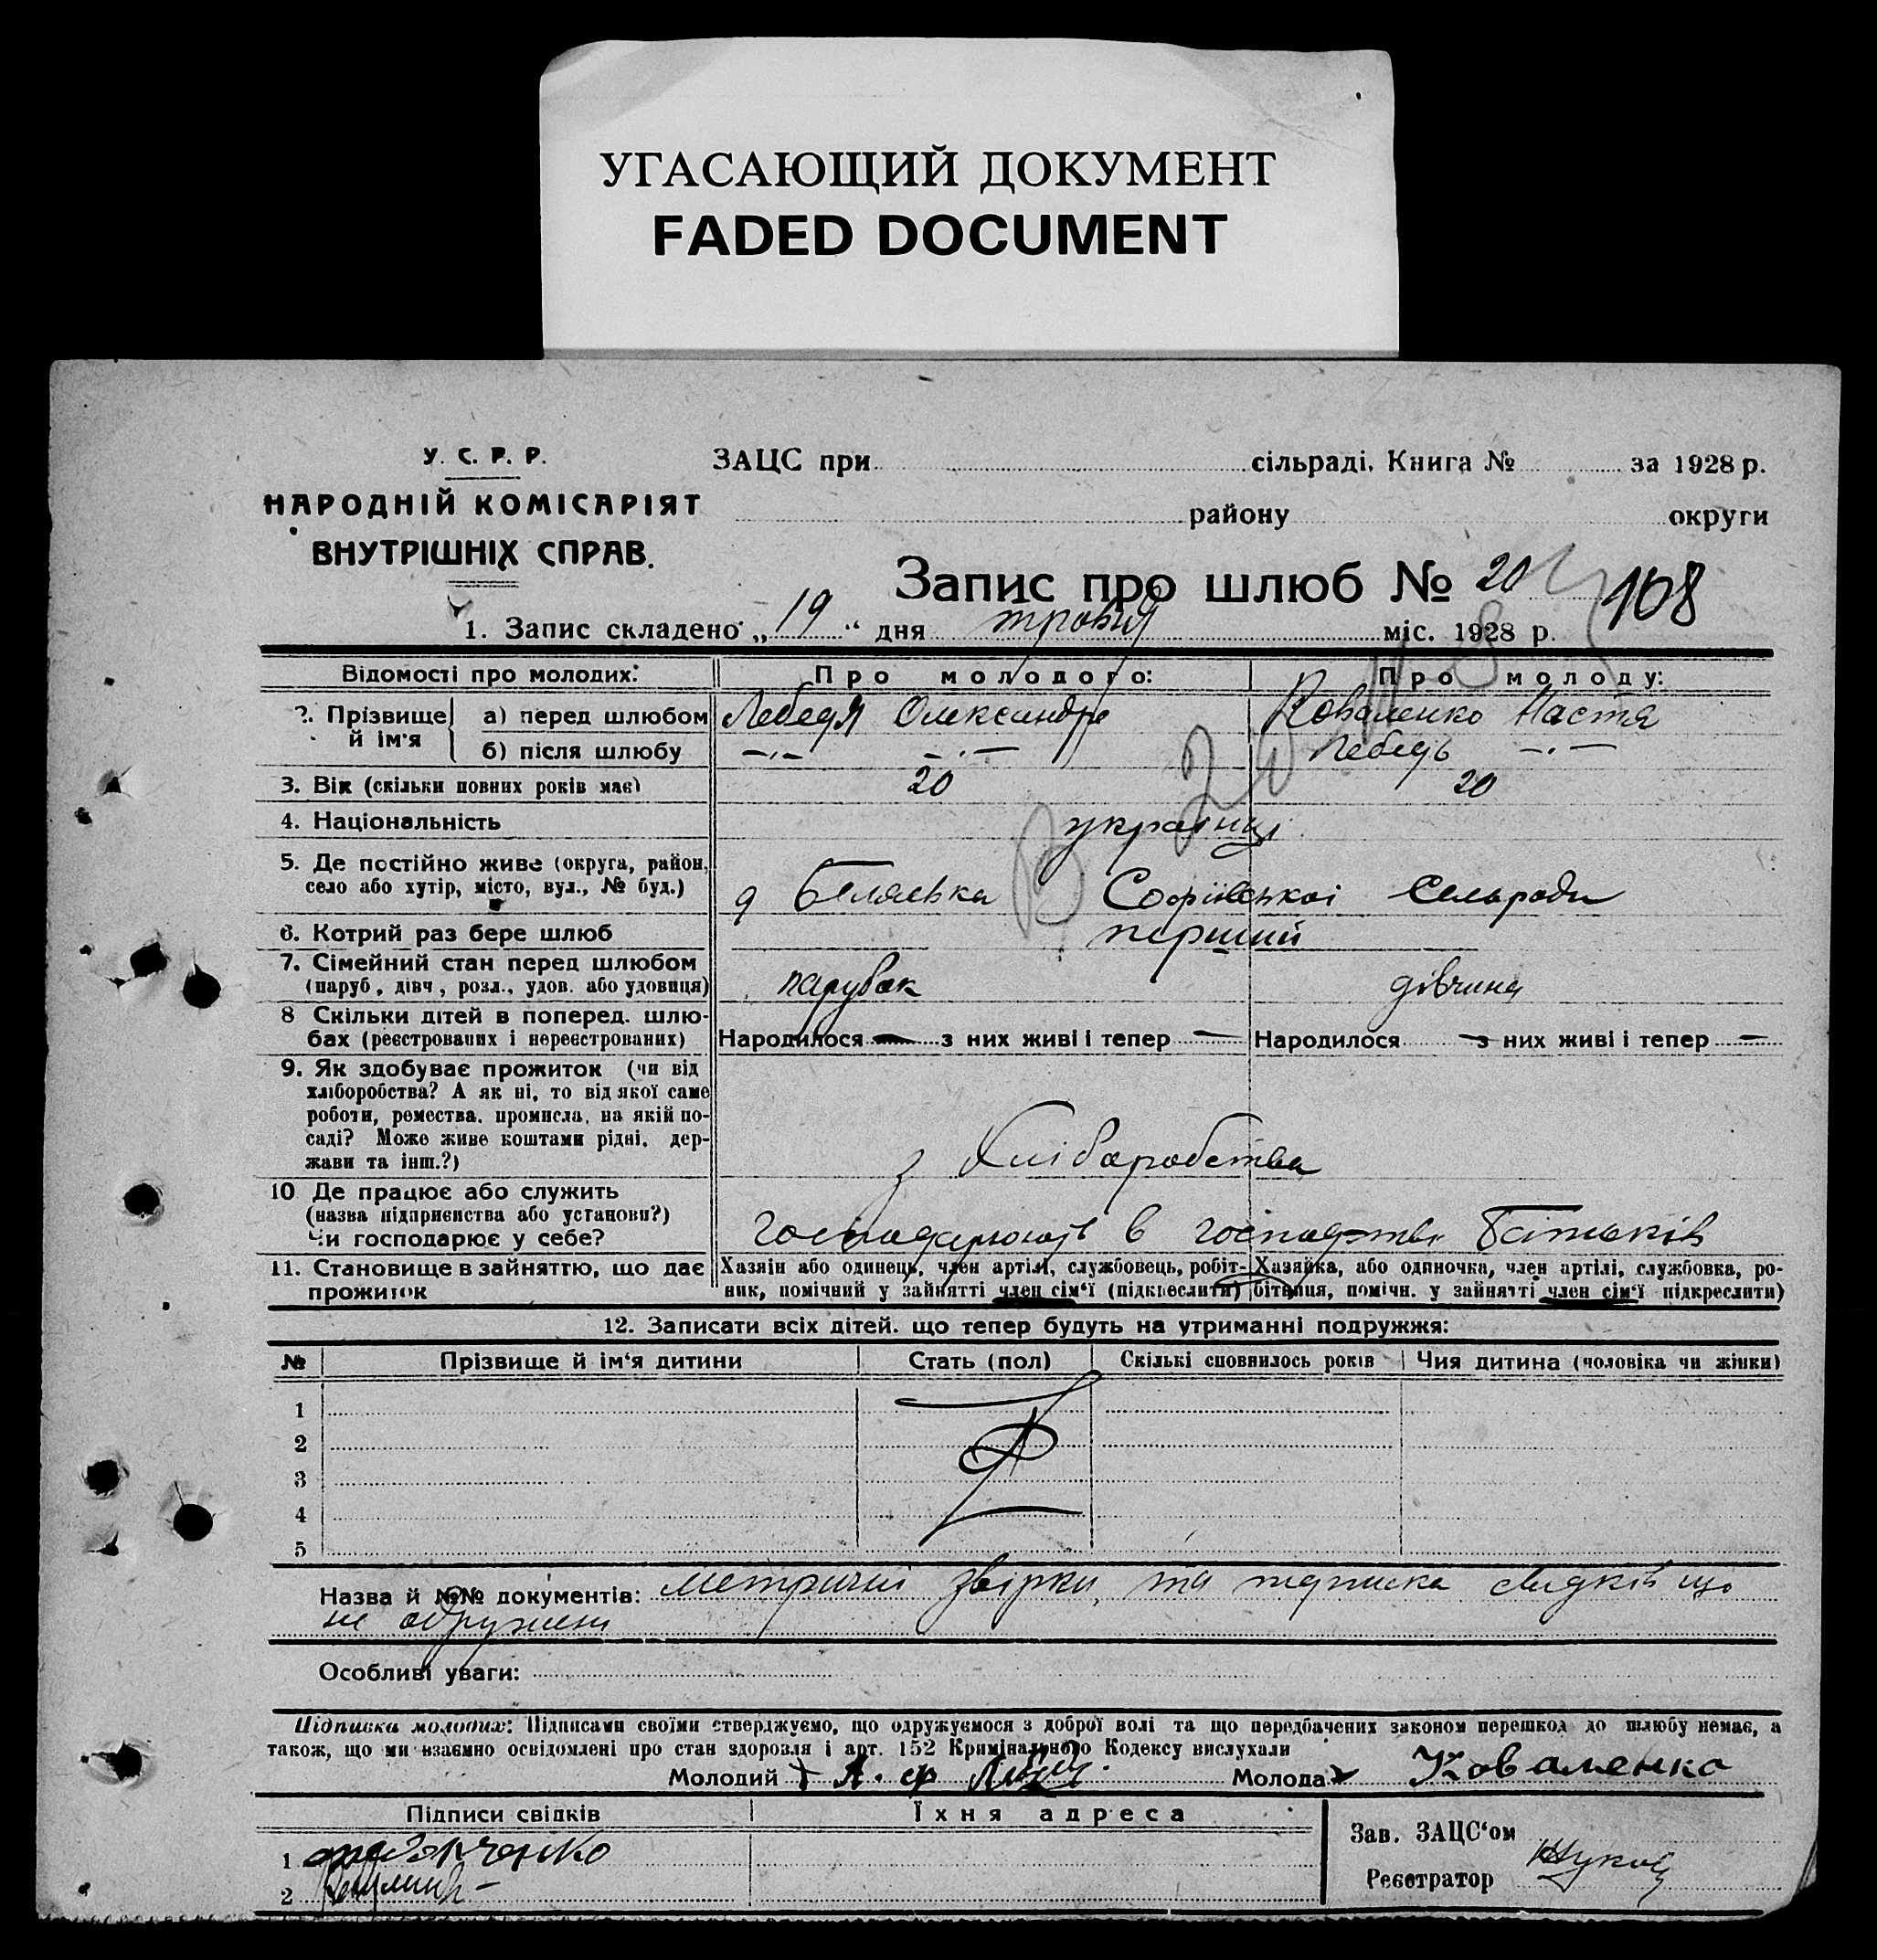 УГАСАЮЩИЙ ДОКУМЕНТ
FADED DOCUMENT
У. С. Р. Р.
НАРОДНІЙ КОМІСАРІЯТ
ВНУТРІШНІХ СПРАВ.
ЗАЦС при сільраді. Книга № за 1928 р.
району округи
Запис про шлюб № 20 108
1. Запис складено „ 19 “ дня травня міс. 1928 р.
Відомості про молодих: Про молодого: Про молоду:
2. Прізвище й ім'я а) перед шлюбом Лебедя Олександр Коваленко Настя
б) після шлюбу —·— —·— Лебедь —·—
3. Вік (скільки повних років має) 20 20
4. Національність українці
5. Де постійно живе (округа, район,
село або хутір, місто, вул., № буд.) д Беляевка Софіївської Сельради
6. Котрий раз бере шлюб перший
7. Сімейний стан перед шлюбом
(паруб, дівч, розл., удов. або удовиця) парубок дівчина
8 Скільки дітей в поперед. шлю-
бах (реєстрованих і нереєстрованих) Народилося — з них живі і тепер — Народилося — з них живі і тепер —
9. Як здобуває прожиток (чи від
хліборобства? А як ні, то від якої саме
роботи, ремества, промисла, на якій по-
саді? Може живе коштами рідні, дер-
жави та інш.?) з Хліборобства
10 Де працює або служить
(назва підприємства або установи?)
Чи господарює у себе? господарюють в господстві Батьків
11. Становище в зайняттю, що дає
прожиток
Хазяін або одинець, член артілі, службовець, робіт-
ник, помічний у зайнятті член сім'ї (підкреслити)
Хазяйка, або одиночка, член артілі, службовка, ро-
бітниця, помічн. у зайнятті член сім'ї підкреслити)
12. Записати всіх дітей. що тепер будуть на утриманні подружжя:
№ Прізвище й ім'я дитини Стать (пол) Скількі сповнилось років Чия дитина (чоловіка чи жінки)
1
2
3
4
5
Назва й №№ документів: метричні звірки, та підписка свидків що
не одружені
Особливі уваги:
Підписка молодих: Підписами своїми стверджуємо, що одружуємося з доброї волі та що передбачених законом перешкод до шлюбу немає, а
також, що ми взаємно освідомлені про стан здоровля і арт. 152 Кримінального Кодексу вислухали
Молодий Молода Коваленко
Підписи свідків Їхня адреса
1
2
Зав. ЗАЦС'ом
Реєстратор